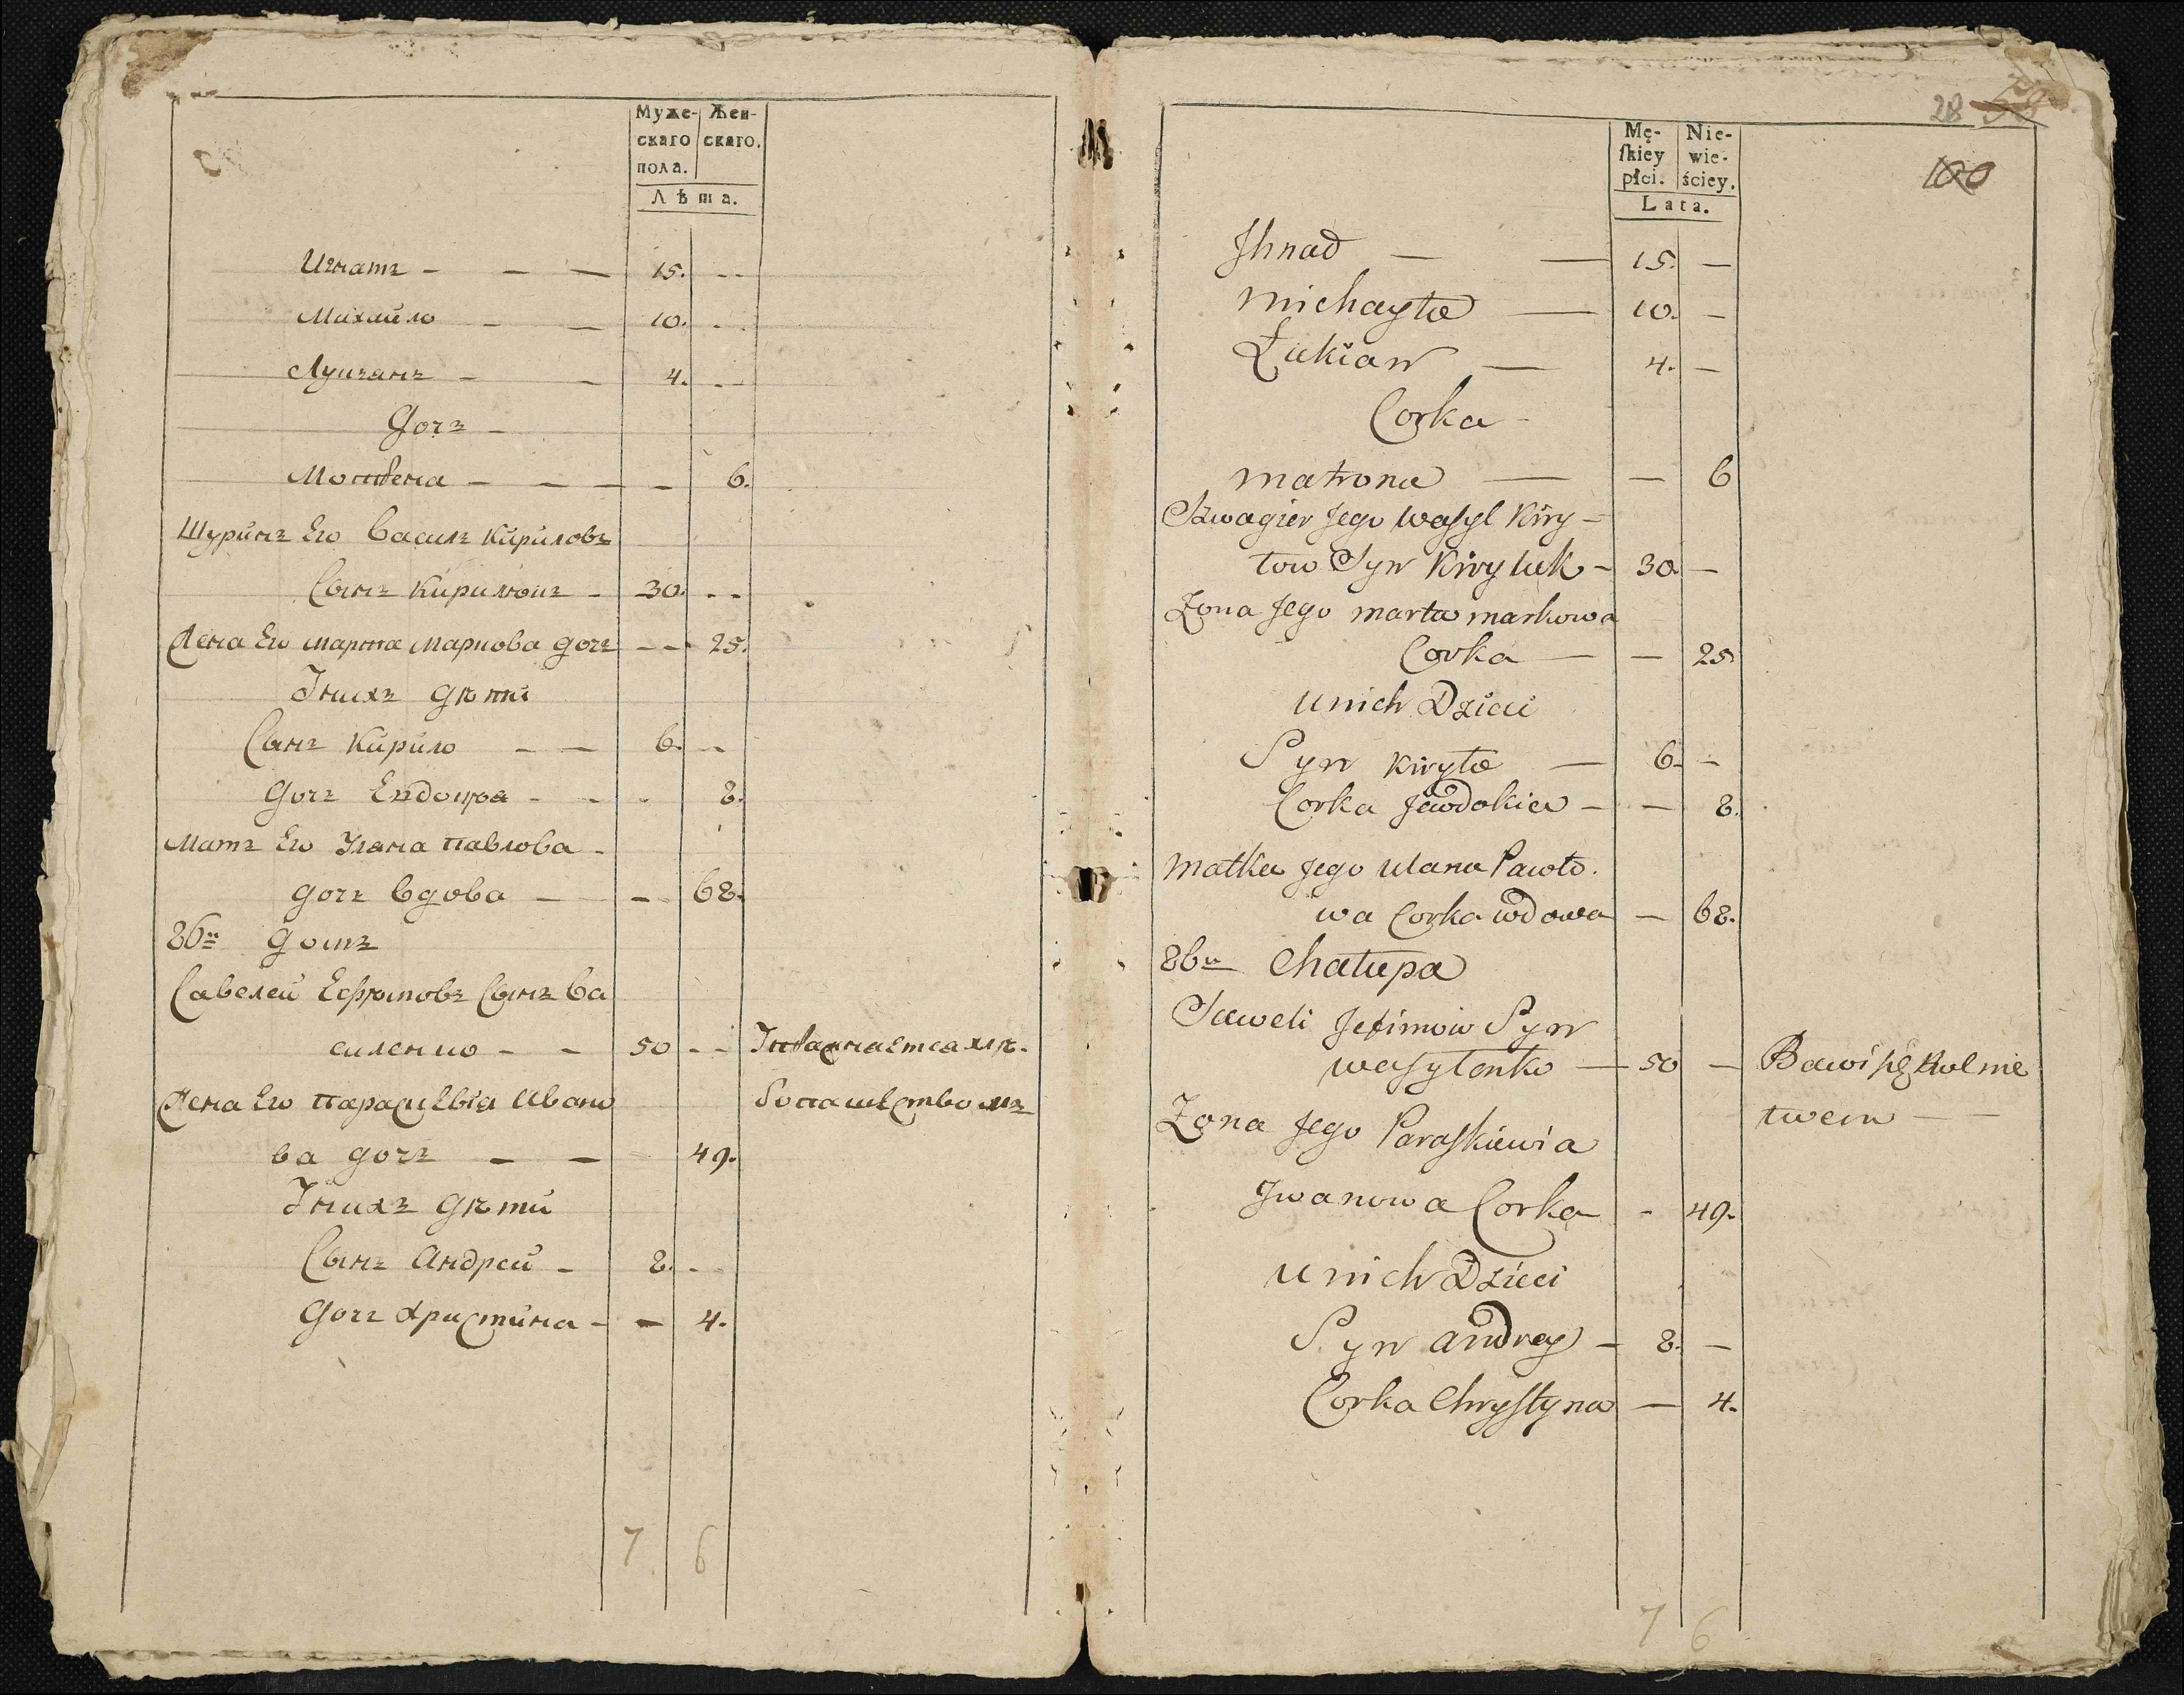 Муже- Жен-
скаго скаго.
пола.
Лѣта.
Игнатъ - - - 15. --
Михайло - - 10. --
Лукианъ - - 4. --
дочъ -
Мотрена - - - - 6.
Шуринъ Его Василъ Кириловъ
Сынъ Кирилюкъ - 30. --
Жена Его марта маркова дочъ -- 25.
Iнихъ дѣти
Сынъ Кирило - - 6. --
дочъ Евдокия - - - 8.
Матъ Его Уляна павлова -
дочъ вдова - - 68.
86й домъ
Савелей Ефимовъ Сынъ Ва
силенко - - 50 -- 
Жена Его параскевия Ивано
ва дочъ - - 49.
Iнихъ дѣти
Сынъ Андрей - 8. --
дочъ Христина - - 4.
7 6
28 59
100
Mę- Nie-
ſkiey wie-
płci. ściey.
Lata.
Jhnad — — 15. —
Michayło — 10. —
Łukian — 4. —
Corka -
matrona — — 6
Szwagier Jego Waſyl Kiry-
łow Syn Kiryluk - 30. —
Zona Jego marta markowa
Corka — — 25
unich Dzieci
Syn Kiryło — 6. —
Corka Jewdokia — — 8.
Matka Jego Ulana Pawło.
wa Corka wdowa — 68.
86ta Chałupa
Saweli Jefimow Syn
waſylenko — 50 — Bawi ſię Rolnic
twem —
Zona Jego Paraſkiewia
Jwanowa Corka - 49.
unich Dzieci
Syn andrey — 8. —
Corka Chryſtyna — 4.
7 6